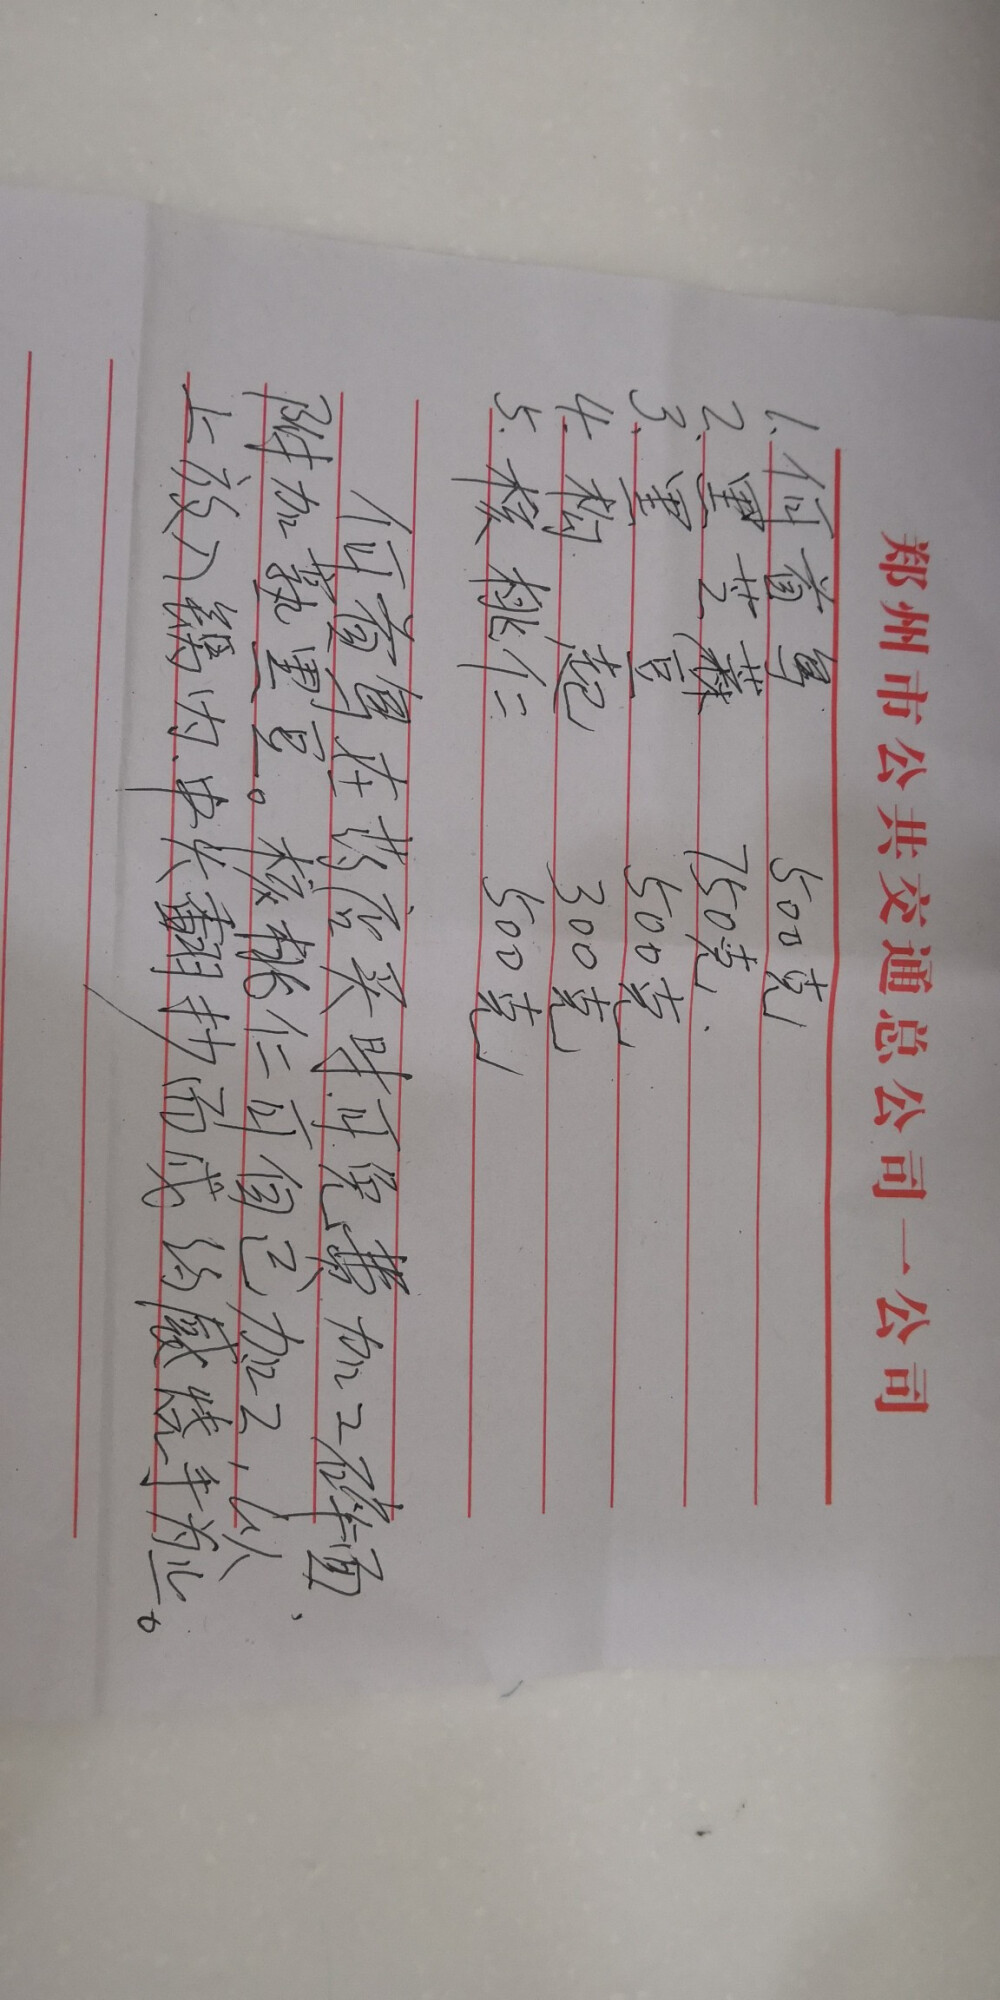 郑州市公共交通总公司一公司
1. 何首乌 500克
2. 黑芝麻 750克.
3. 黑豆 500克
4. 枸 杞 300克
5. 核桃仁 500克
何首乌在药店买时可免费加工碎面、
附加熟黑豆。核桃仁可自己加工,以
上放入锅内.中火翻扔而成 约减